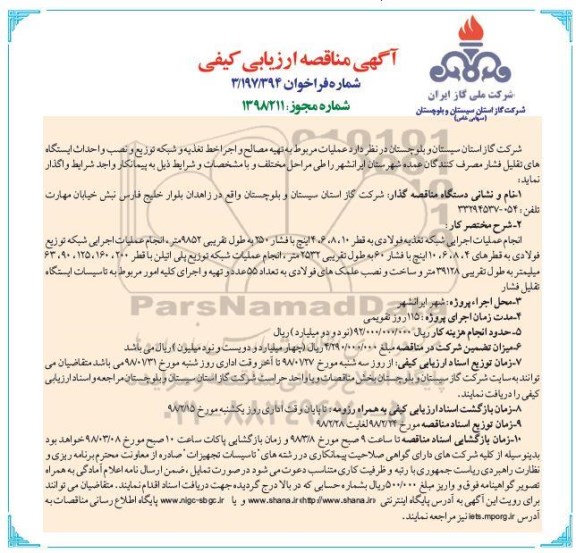 آگهی مناقصه ارزیابی کیفی
شماره فراخوان ۳/۱۹۷/۳۹۴
شماره مجوز: ۱۳۹۸/۲۱۱
شرکت ملی گاز ایران
شرکت گاز استان سیستان و بلوچستان
(سهامی خاص)
شرکت گاز استان سیستان و بلوچستان در نظر دارد عملیات مربوط به تهیه مصالح و اجرا خط تغذیه و شبکه توزیع و نصب و احداث ایستگاه
های تقلیل فشار مصرف کنندگان عمده شهرستان ایرانشهر را طی مراحل مختلف و با مشخصات و شرایط ذیل به پیمانکار واجد شرایط واگذار
نماید:
۱-نام و نشانی دستگاه مناقصه گذار: شرکت گاز استان سیستان و بلوچستان واقع در زاهدان بلوار خلیج فارس نبش خیابان مهارت
تلفن: ۰۵۴-۳۳۲۹۴۵۳۷
۲-شرح مختصر کار:
انجام عملیات اجرایی شبکه تغذیه فولادی به قطر ۱۰، ۸، ۶، ۴ اینچ با فشار ۲۵۰ به طول تقریبی ۹۸۵۲ متر، انجام عملیات اجرایی شبکه توزیع
فولادی به قطر های ۴، ۸، ۶، ۱۰ اینچ با فشار ۶۰ به طول تقریبی ۲۵۳۲ متر، انجام عملیات شبکه توزیع پلی اتیلن با قطر ۲۰۰، ۱۶۰، ۱۲۵، ۹۰، ۶۳
میلیمتر به طول تقریبی ۳۹۱۲۸ متر و ساخت و نصب علمک های فولادی به تعداد ۵۵ عدد و تهیه و اجرای کلیه امور مربوط به تاسیسات ایستگاه
تقلیل فشار
۳-محل اجراء پروژه: شهر ایرانشهر
۴-مدت زمان اجرای پروژه: ۱۱۵ روز تقویمی
۵-حدود انجام هزینه کار ریال ۹۲/۰۰۰/۰۰۰/۰۰۰ (نود و دو میلیارد) ریال
۶-میزان تضمین شرکت در مناقصه مبلغ ۴/۲۹۰/۰۰۰/۰۰۰ ریال (چهار میلیارد و دویست و نود میلیون) ریال می باشد
۷-زمان توزیع اسناد ارزیابی کیفی: از روز سه شنبه مورخ ۹۸/۰۱/۲۷ تا آخر وقت اداری روز شنبه مورخ ۹۸/۰۱/۳۱ می باشد متقاضیان می
توانند به سایت شرکت گاز سیستان و بلوچستان بخش مناقصات و یا واحد حراست شرکت گاز استان سیستان و بلوچستان مراجعه و اسناد ارزیابی
کیفی را دریافت نمایند.
۸-زمان بازگشت اسناد ارزیابی کیفی به همراه رزومه: تا پایان وقت اداری روز یکشنبه مورخ ۹۸/۲/۱۵
۹-زمان توزیع اسناد مناقصه مورخ ۹۸/۲/۲۴ لغایت ۹۸/۲/۲۸
۱۰-زمان بازگشایی اسناد مناقصه تا ساعت ۹ صبح مورخ ۹۸/۳/۸ و زمان بازگشایی پاکات ساعت ۱۰ صبح مورخ ۹۸/۰۳/۰۸ خواهد بود
بدینوسیله از کلیه شرکت های دارای گواهی صلاحیت پیمانکاری در رشته های "تاسیسات تجهیزات" صادره از معاونت محترم برنامه ریزی و
نظارت راهبردی ریاست جمهوری با رتبه و ظرفیت کاری متناسب دعوت می شود در صورت تمایل، ضمن ارسال نامه اعلام آمادگی به همراه
تصویر گواهینامه فوق و واریز مبلغ ۵۰۰/۰۰۰ ریال بشماره حسابی که در بالا درج گردیده جهت دریافت اسناد اقدام نمایند. متقاضیان می توانند
برای رویت این آگهی به آدرس پایگاه اینترنتی www.shana.ir<http://www.shana.ir> و یا www.nigc-sbgc.ir پایگاه اطلاع رسانی مناقصات به
آدرس iets.mporg.ir نیز مراجعه نمایند.
ParsNamadData